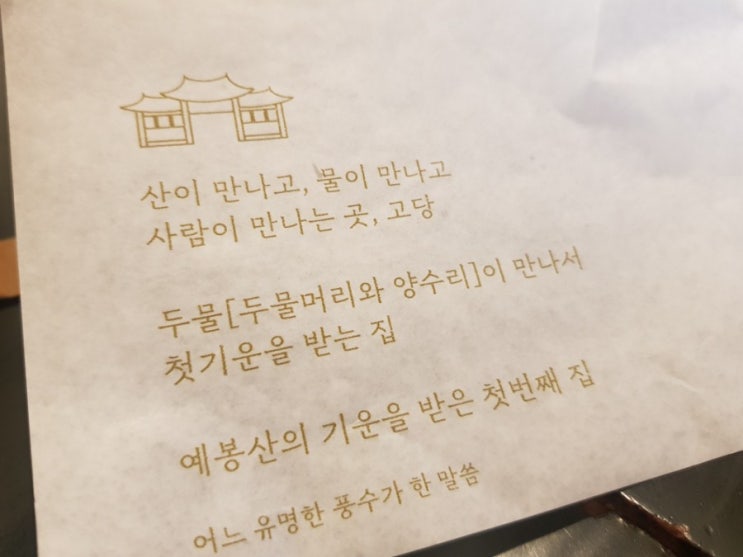 산이 만나고, 물이 만나고
사람이 만나는 곳, 고당
두물[두물머리와 양수리]이 만나서
첫기운을 받는 집
예봉산의 기운을 받은 첫번째 집
어느 유명한 풍수가 한 말씀